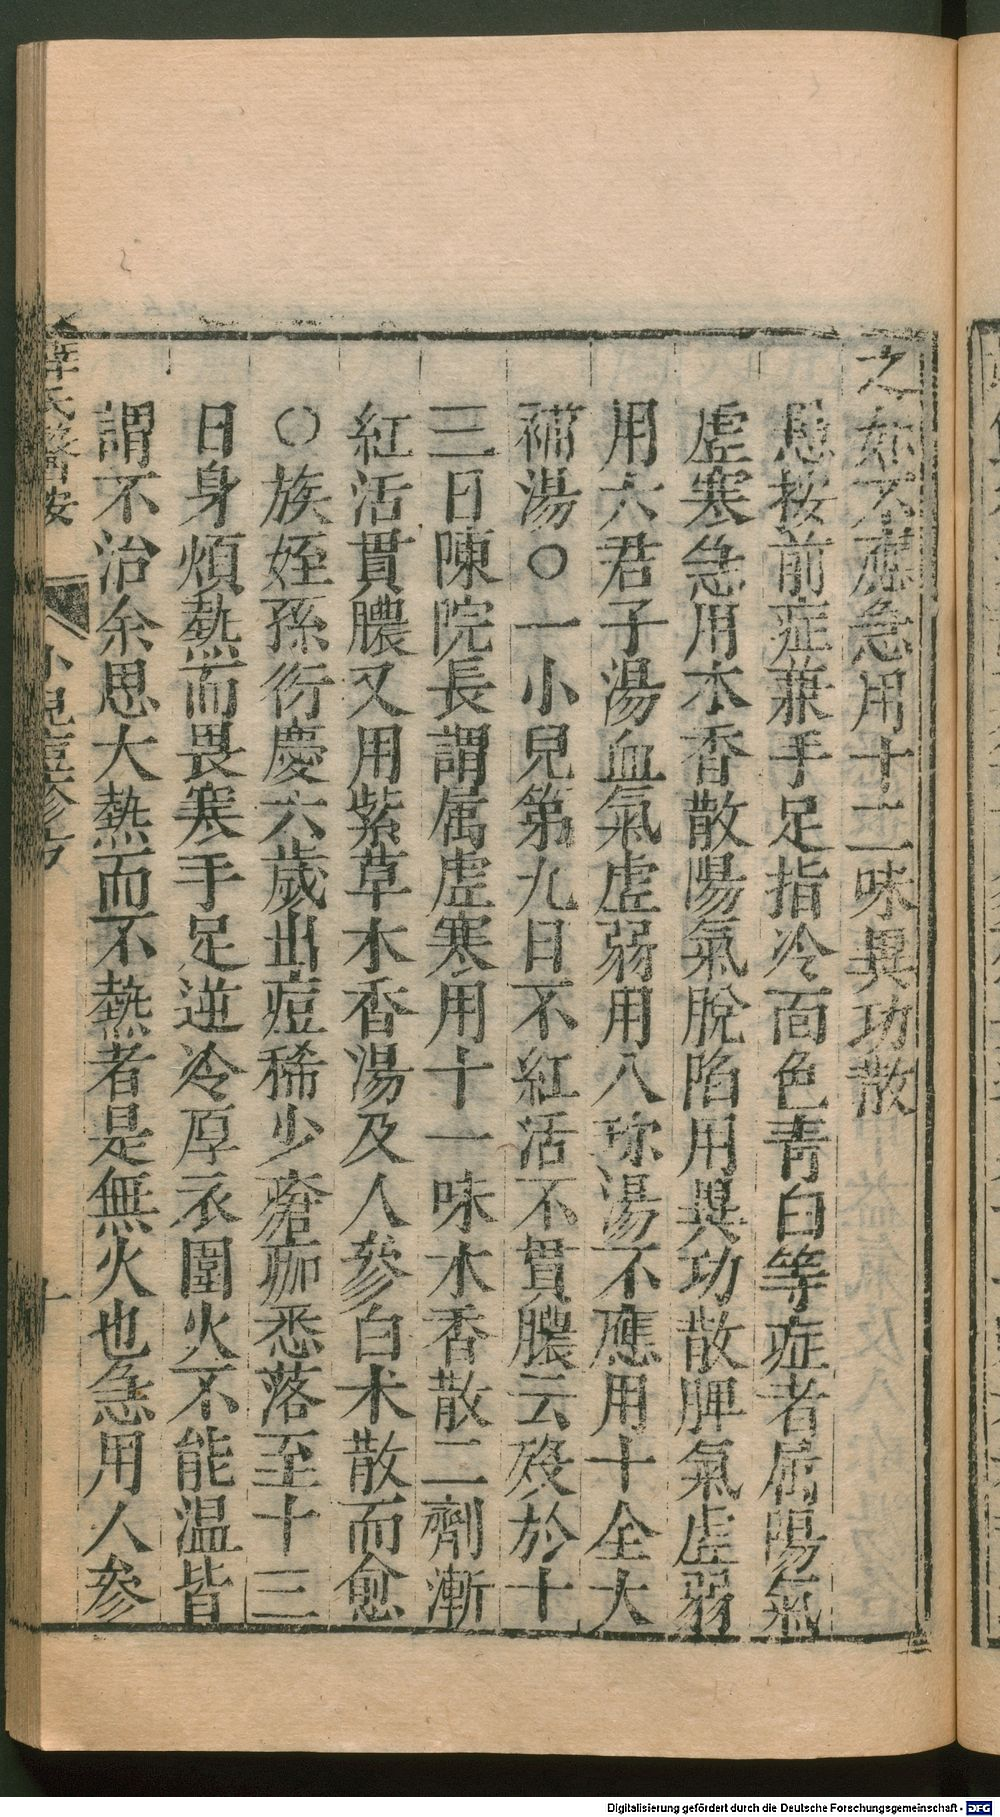 之如不應急用十二味異功散
愚按前症兼手足指冷面色青白等症者屬陽氣
虛寒急用木香散陽氣脫陷用異功散脾氣虛弱
用六君子湯血氣虛弱用八珍湯不應用十全大
補湯○一小兒第九日不紅活不貫膿云殁於十
三日陳院長謂属虛寒用十一味木香散二劑漸
紅活貫膿又用紫草木香湯及人參白术散而愈
○族姪孫衍慶六歲出痘稀少瘡痂悉落至十三
日身煩熱而畏寒手足逆冷厚衣圍火不能温皆
謂不治余思大熱而不熱者是無火也急用人參
薛氏醫按
小兒痘疹方
十
Digitalisierung gefördert durch die Deutsche Forschungsgemeinschaft - DFG